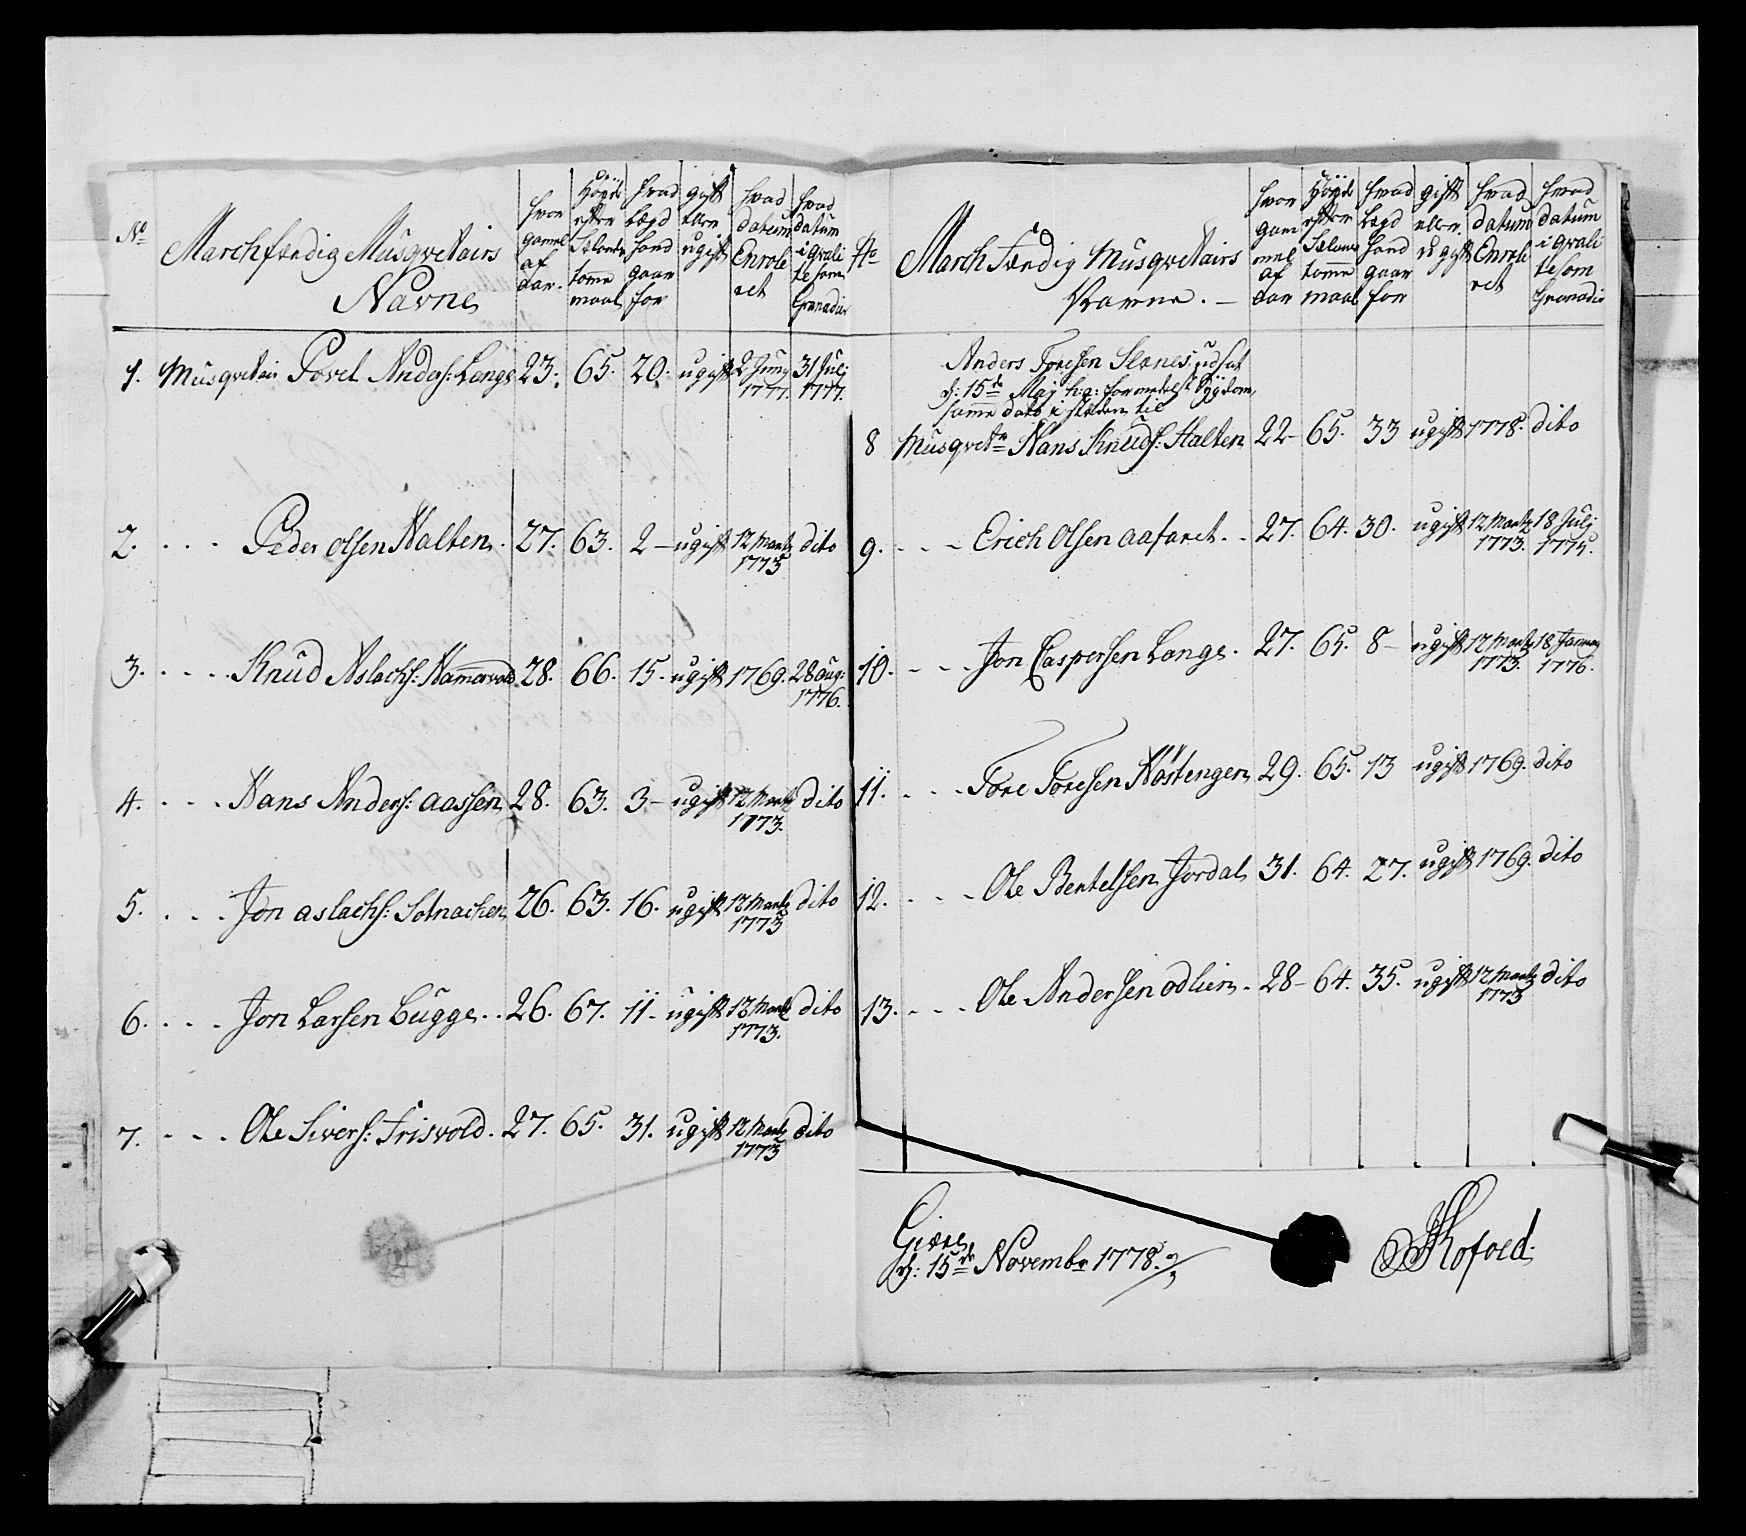 No
Marchfærdig Musqvetairs
Navne
hvor gamel af aar.
Høyde efter Sælands tome maal
hvad Lægd hand gaar for
gift eller ugift
hvad datum Enrole ret
hvad datum i qvali te som Granadier
1. Musqvetair Povel Anders: Lange 23. 65. 20. ugift 2 Juny 1777. 31 Julj 1777.
2. Peder Olsen Halten. 27. 63. 2 ugift 12 Martz 1773 dito
3. Knud Aslachs: Hamervold 28. 66. 15. ugift 1769. 28 Aug: 1776.
4. Hans Anders: Aassen 28. 63. 3 ugift 12 Martz 1773. dito
5. Jon Aslachs: Solnachen 26. 63. 16. ugift 12 Martz 1773 dito
6. Jon Larsen Bugge. 26. 67. 11 ugift 12 Martz 1773. dito
7. Ole Sivers: Frisvold. 27. 65. 31. ugift 12 Martz 1773 dito
No
March Færdig Musqvetairs
Navne.
hvor gam mel af aar
Høyde efter Sælans tomme maal
hvad Lægd hand gaar for
gift eller ugift
hvad datum Enrole ret
hvad datum i qvali te som Granadie
Anders Toresen udsat
d: 15de Maj h: a: formedelst Sÿgdom,
samme dato i steden til
8 Musqvetr Hans Knuds: Halten 22 65. 33 ugift 1778. dito
9. Erich Olsen Aafaret. 27. 64. 30. ugift 12 Martz 1773. 18 Julj 1775.
10. Jon Caspersen Lange. 27. 65. 8 ugift 12 Martz 1773. 18 Januarj 1776.
11. Tore Toresen Nøstengen 29. 65. 13 ugift 1769. dito
12. Ole Bertelsen Jordal 31. 64. 27. ugift 1769. dito
13. Ole Andersen Odlien. 28 64. 35. ugift 12 Martz 1773 dito
d: 15de Novembr 1778.
Kofoed.